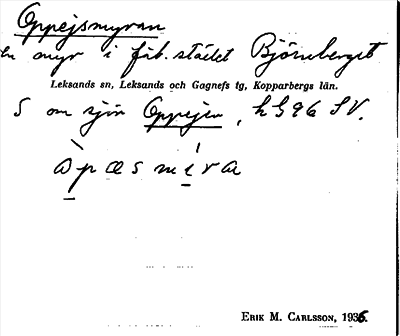 Oppejsmyran
en myr i fäb.stället Björnberget
Leksands sn, Leksands och Gagnefs tg, Kopparbergs län.
S om sjön Oppejen, k G96 SV.
ERIK M. CARLSSON, 1936.